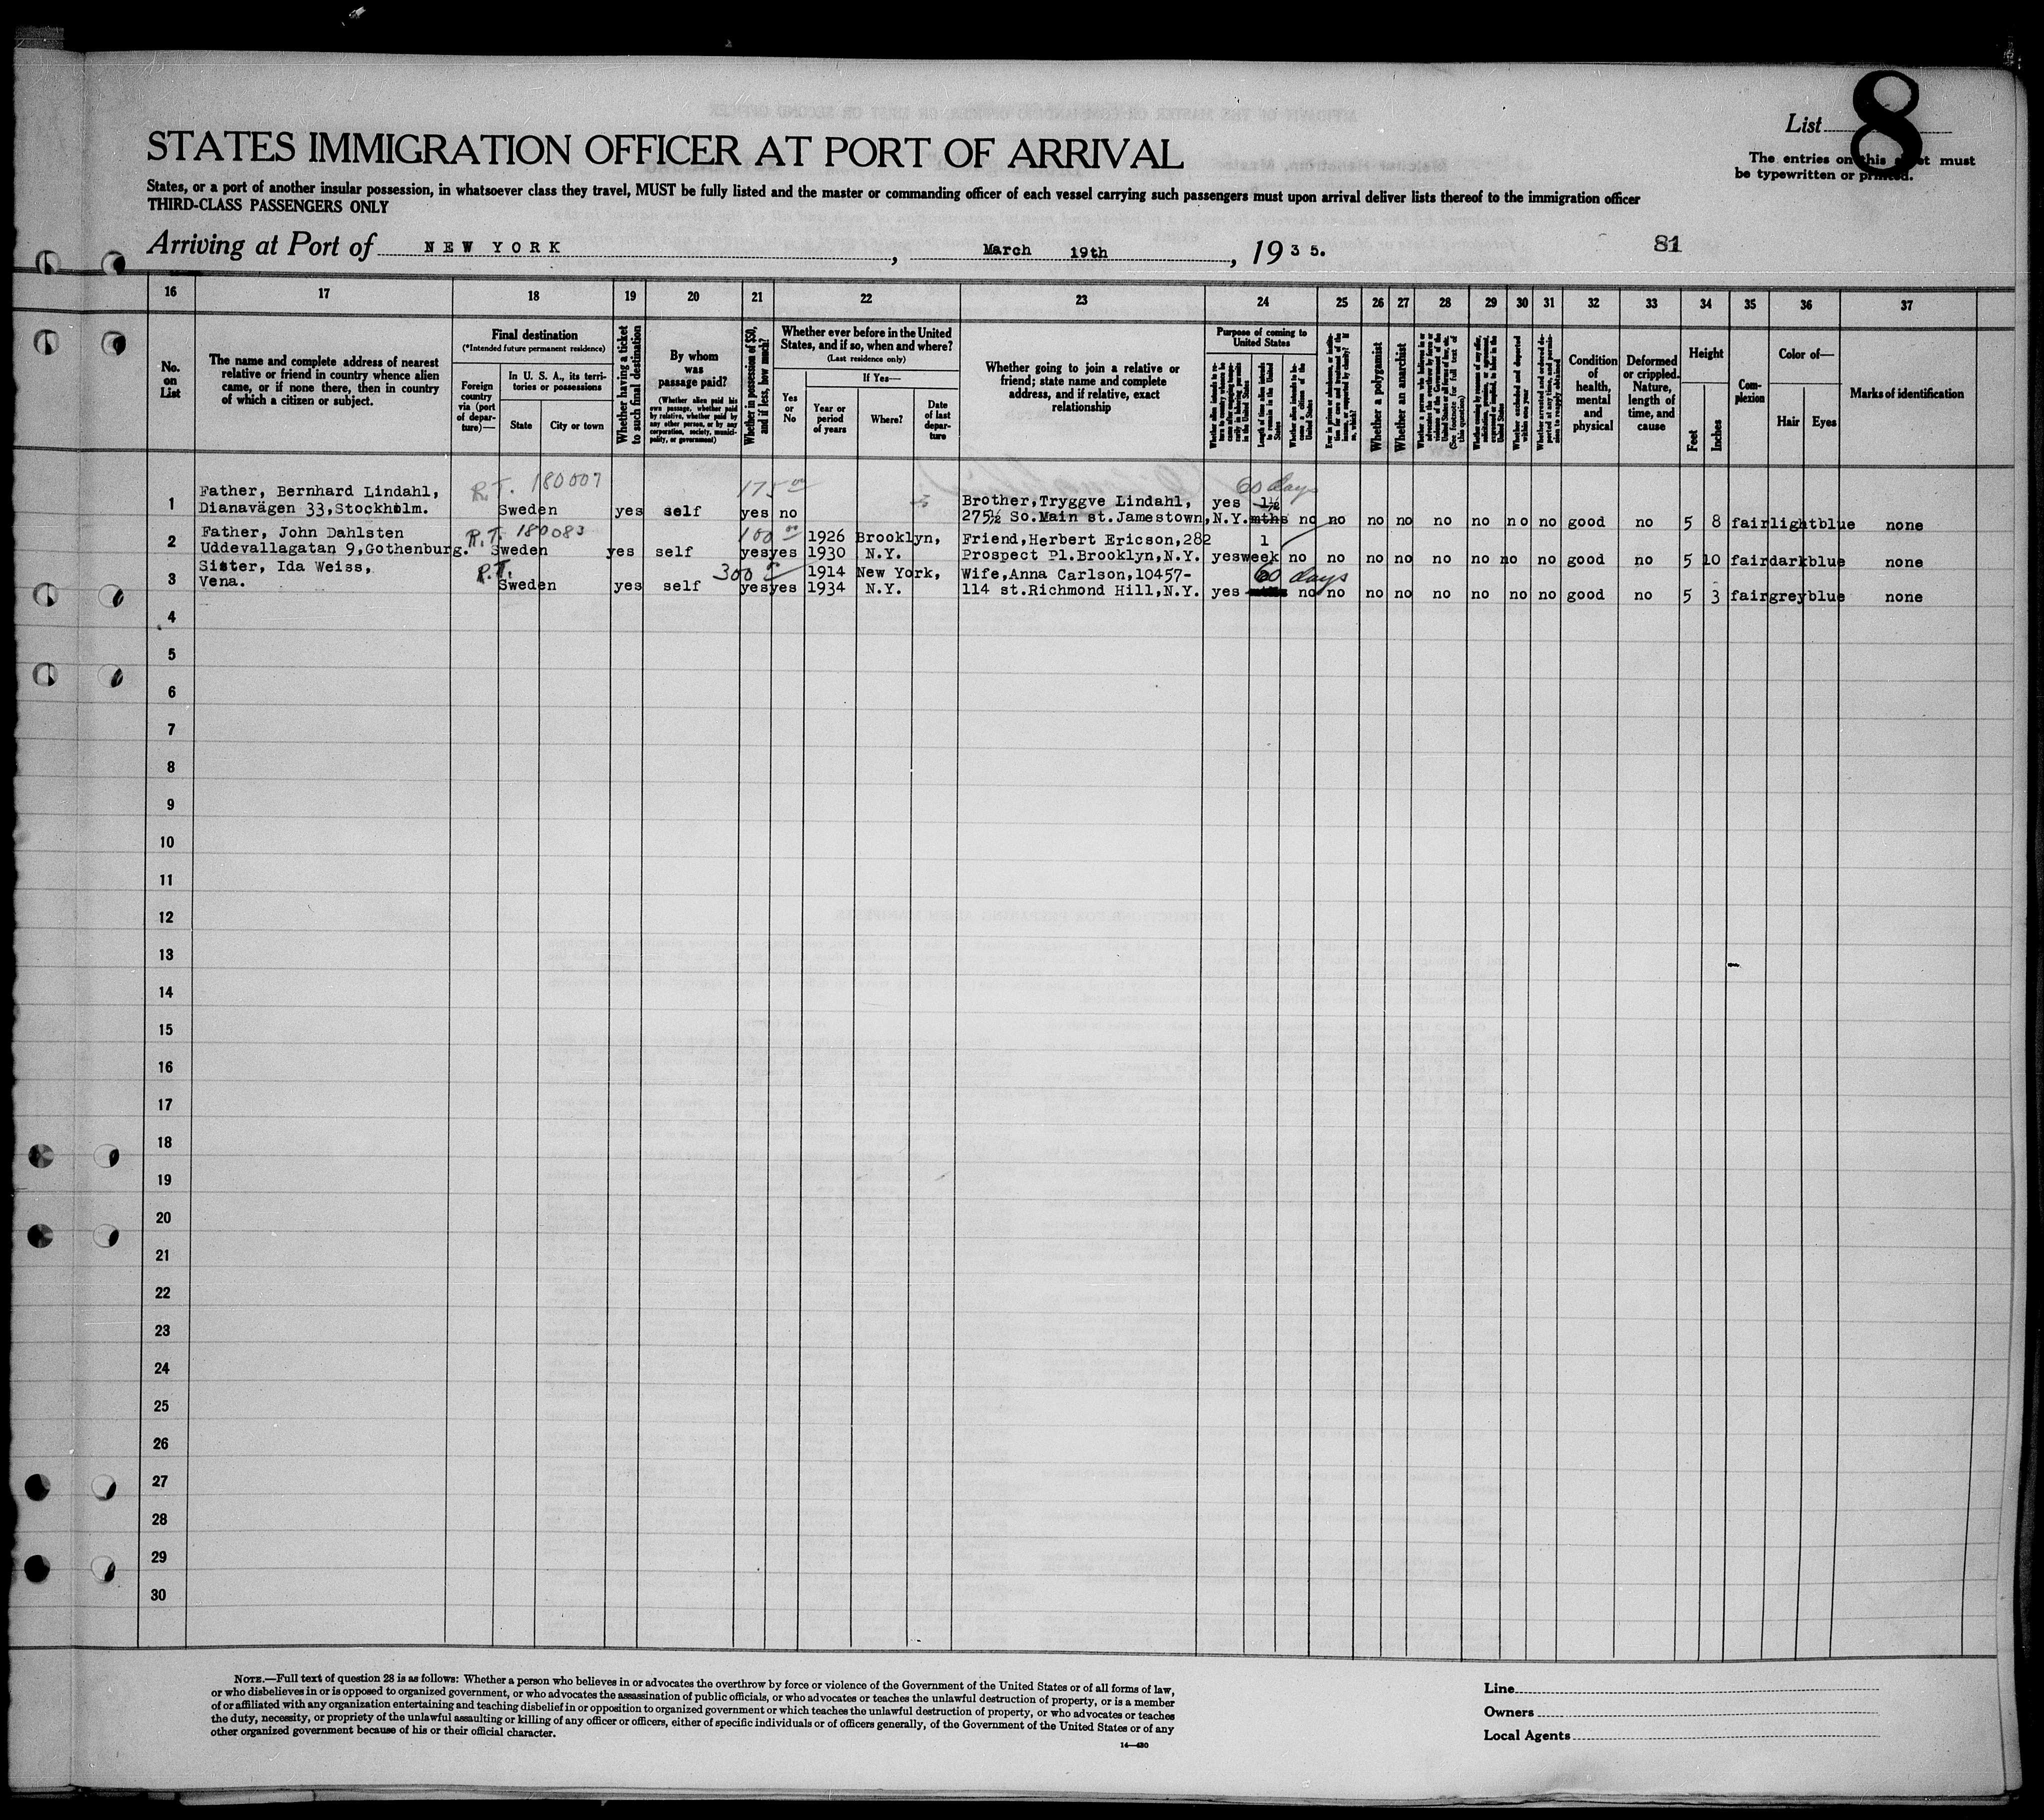 List 8
STATES IMMIGRATION OFFICER AT PORT OF ARRIVAL
The entries on this sheet must
be typewritten or printed.
States, or a port of another insular possession, in whatsoever class they travel, MUST be fully listed and the master or commanding officer of each vessel carrying such passengers must upon arrival deliver lists thereof to the immigration officer
THIRD-CLASS PASSENGERS ONLY
Arriving at Port of NEW YORK, March 19th, 1935.
81
16 17 18 19 20 21 22 23 24 25 26 27 28 29 30 31 32 33 34 35 36 37
No. on List
The name and complete address of nearest relative or friend in country whence alien came, or if none there, then in country of which a citizen or subject.
Final destination
(*Intended future permanent residence)
Foreign country via (port of departure)—
In U. S. A., its territories or possessions
State
City or town
Whether having a ticket to such final destination
By whom was passage paid?
(Whether alien paid his own passage, whether paid by relative, whether paid by any other person, or by any corporation, society, municipality, or government)
Whether in possession of $50, and if less, how much?
Whether ever before in the United States, and if so, when and where?
(Last residence only)
Yes or No
If Yes—
Year or period of years
Where?
Date of last departure
Whether going to join a relative or friend; state name and complete address, and if relative, exact relationship
Purpose of coming to United States
Length of time alien intends to remain in the United States
Whether alien intends to become a citizen of the United States
Whether a polygamist
Whether an anarchist
Whether excluded and deported within one year
Condition of health, mental and physical
Deformed or crippled. Nature, length of time, and cause
Height
Feet
Inches
Complexion
Color of—
Hair
Eyes
Marks of identification
R.T. 180007 175 00 60 days
1 Father, Bernhard Lindahl, Brother, Tryggve Lindahl, yes 1½
Dianavägen 33, Stockholm. Sweden yes self yes no 275½ So. Main st. Jamestown, N.Y. mths no no no no no no no no good no 5 8 fair light blue none
R.T. 180083 100 00
2 Father, John Dahlsten 1926 Brooklyn, Friend, Herbert Ericson, 282 1
Uddevallagatan 9, Gothenburg. Sweden yes self yes yes 1930 N.Y. Prospect Pl. Brooklyn, N.Y. yes week no no no no no no no no good no 5 10 fair dark blue none
R.T. 300 60 days
3 Sister, Ida Weiss, 1914 New York, Wife, Anna Carlson, 10457-
Vena. Sweden yes self yes yes 1934 N.Y. 114 st. Richmond Hill, N.Y. yes no no no no no no no no good no 5 3 fair grey blue none
4
5
6
7
8
9
10
11
12
13
14
15
16
17
18
19
20
21
22
23
24
25
26
27
28
29
30
NOTE.—Full text of question 28 is as follows: Whether a person who believes in or advocates the overthrow by force or violence of the Government of the United States or of all forms of law,
or who disbelieves in or is opposed to organized government, or who advocates the assassination of public officials, or who advocates or teaches the unlawful destruction of property, or is a member
of or affiliated with any organization entertaining and teaching disbelief in or opposition to organized government or which teaches the unlawful destruction of property, or who advocates or teaches
the duty, necessity, or propriety of the unlawful assaulting or killing of any officer or officers, either of specific individuals or of officers generally, of the Government of the United States or of any
other organized government because of his or their official character.
14—430
Line
Owners
Local Agents